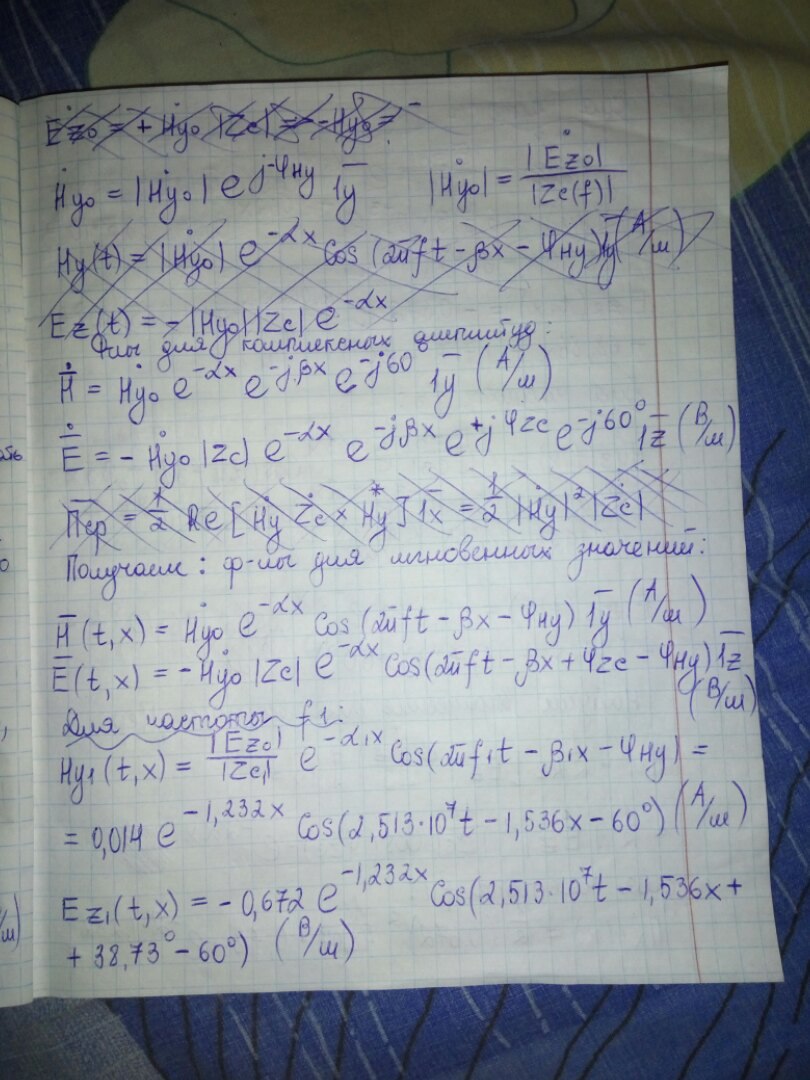 Ėz0 = + Ḣy0 |Zc| = - Hy0 = -
Ḣy0 = |Ḣy0| e^(j-φHy) 1̅y̅ |Ḣy0| = |Ėz0| / |Zc(f)|
Hy(t) = |Ḣy0| e^(-αx) Cos (2πft - βx - φHy) 1y (А/м)
Ez(t) = - |Hy0| |Zc| e^(-αx)
Ф-лы для комплексных амплитуд:
Ḣ = Ḣy0 e^(-αx) e^(-jβx) e^(-j60) 1̅y̅ (А/м)
Ė = - Ḣy0 |Zc| e^(-αx) e^(-jβx) e^(+jφzc) e^(-j60°) 1̅z̅ (В/м)
П̅ср = 1/2 Re [Ḣy Żc × Ḣy*] 1̅x̅ = 1/2 |Ḣy|² |Żc|
Получаем: ф-лы для мгновенных значений:
H̅(t,x) = Ḣy0 e^(-αx) Cos (2πft - βx - φHy) 1̅y̅ (А/м)
E̅(t,x) = - Ḣy0 |Zc| e^(-αx) Cos(2πft - βx + φzc - φHy) 1̅z̅
(В/м)
Для частоты f1:
Hy1(t,x) = |Ez0| / |Zc1| e^(-α1x) Cos(2πf1t - β1x - φHy) =
= 0,014 e^(-1,232x) Cos(2,513·10⁷t - 1,536x - 60°) (А/м)
Ez1(t,x) = - 0,672 e^(-1,232x) Cos(2,513·10⁷t - 1,536x +
+ 38,73° - 60°) (В/м)